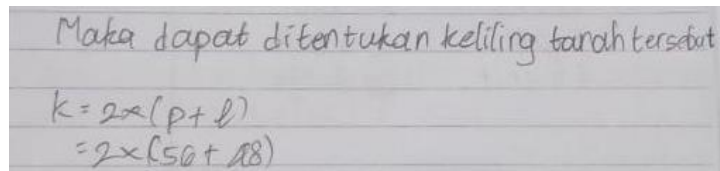 Maka dapat ditentukan keliling tanah tersebut
k = 2x(p+l)
= 2x(56+48)